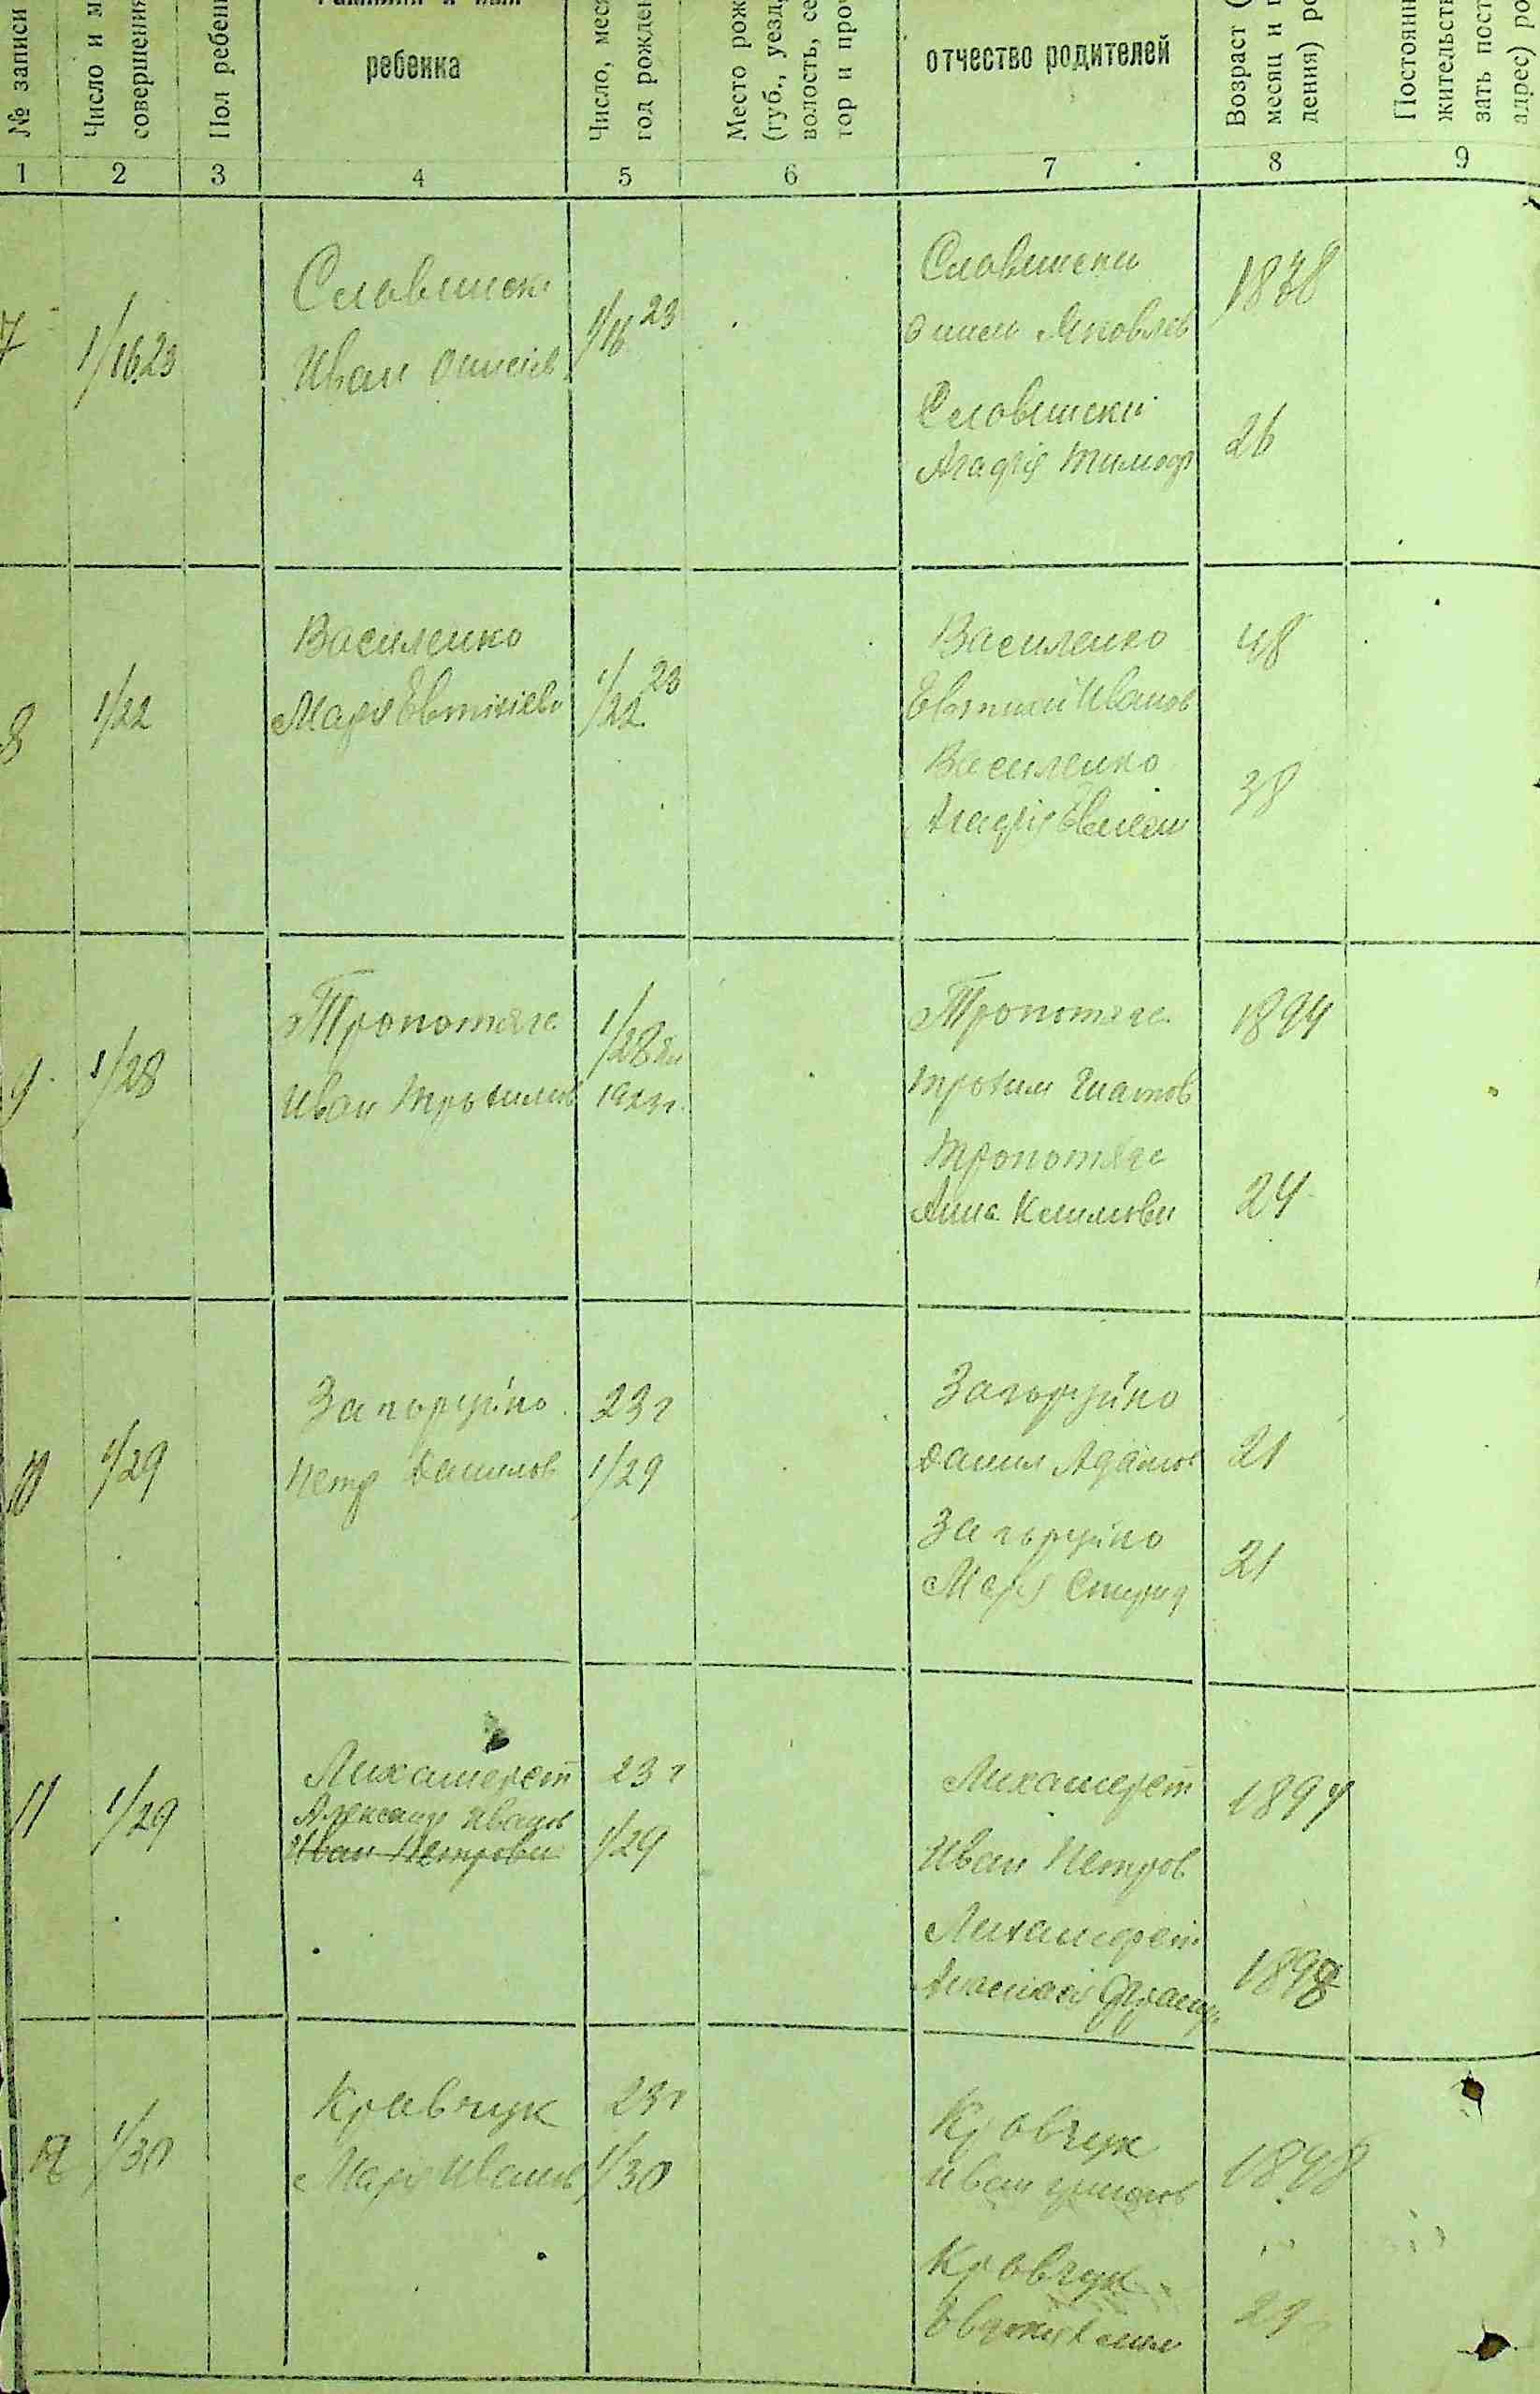 № записи
Число и м
совершения
Пол ребен
ребенка
Число, мес
год рожден
Место рож
(губ., уезд,
волость, се
тор и про
отчество родителей
Возраст (
месяц и г
дения) ро
Постоянн
жительст
зать пост
адрес) ро
1 2 3 4 5 6 7 8 9
7 1/16 23
Славински
Иван
1/16 23
Славински
Яковлев
1878
Славински
Агафія Тимоф
26
8 1/22
Василенко
Марія Евтихіева
1/22 23
Василенко
Евтихий Иванов
48
Василенко
Агафія
38
9 1/28
Тропотяга
Иван Трохимов
1/28
1923 г.
Тропотяга
Трохим Гнатов
1894
Тропотяга
Анна Климова
24
10 1/29
Загоруйко
Петр Данилов
23 г
1/29
Загоруйко
Данил Адамов
21
Загоруйко
Мария Спирид
21
11 1/29
Лихашерст
Александр Иванов
Иван Петрови
23 г
1/29
Лихашерст
Иван Петров
1894
Лихашерст
Анастасія
1898
12 1/30
Кравчук
Мария Иванов
23 г
1/30
Кравчук
Иван
1898
Кравчук